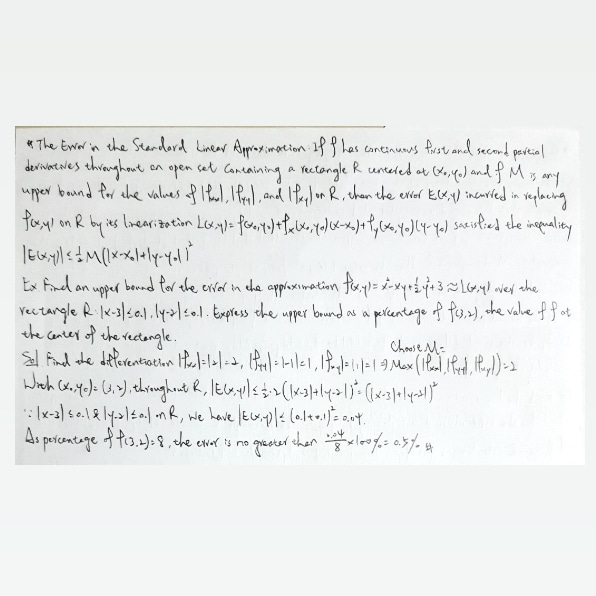 * The Error in the Standard Linear Approximation. If f has continuous first and second partial
derivatives throughout an open set containing a rectangle R centered at (x₀,y₀) and f M is any
upper bound for the values of |fxx|, |fyy|, and |fxy| on R, then the error E(x,y) incurred in replacing
f(x,y) on R by its linearization L(x,y)=f(x₀,y₀)+fx(x₀,y₀)(x-x₀)+fy(x₀,y₀)(y-y₀) satisfied the inequality
|E(x,y)|≤½M(|x-x₀|+|y-y₀|)²
Ex Find an upper bound for the error in the approximation f(x,y)=x²-xy+½y²+3≈L(x,y) over the
rectangle R: |x-3|≤0.1, |y-2|≤0.1. Express the upper bound as a percentage of f(3,2), the value of f at
the center of the rectangle.
Choose M=
Sol Find the differentiation |fxx|=|2|=2, |fyy|=|1|=1, |fxy|=|-1|=1 ⇒ Max(|fxx|,|fyy|,|fxy|)=2
With (x₀,y₀)=(3,2), throughout R, |E(x,y)|≤½·2(|x-3|+|y-2|)²=(|x-3|+|y-2|)²
∵ |x-3|≤0.1 & |y-2|≤0.1 on R, we have |E(x,y)|≤(0.1+0.1)²=0.04.
As percentage of f(3,2)=8, the error is no greater than 0.04/8×100%=0.5% #